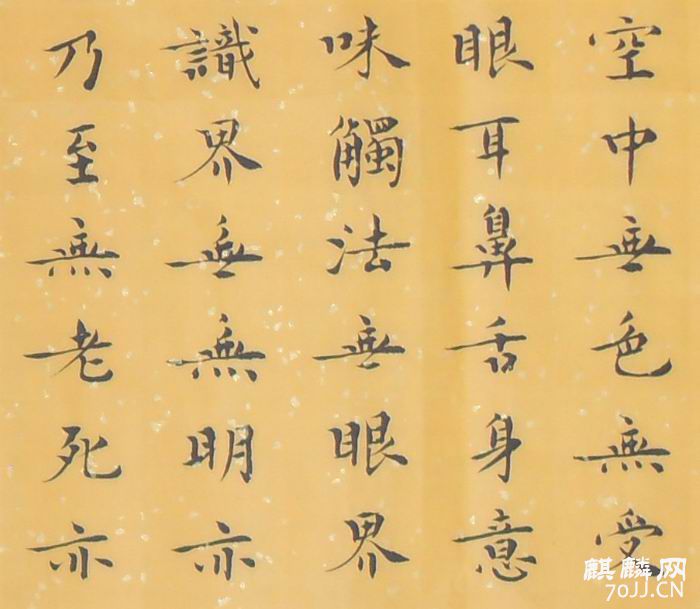 空中無色無受
眼耳鼻舌身意
味觸法無眼界
識界無無明亦
乃至無老死亦
麒麟网
70JJ.CN